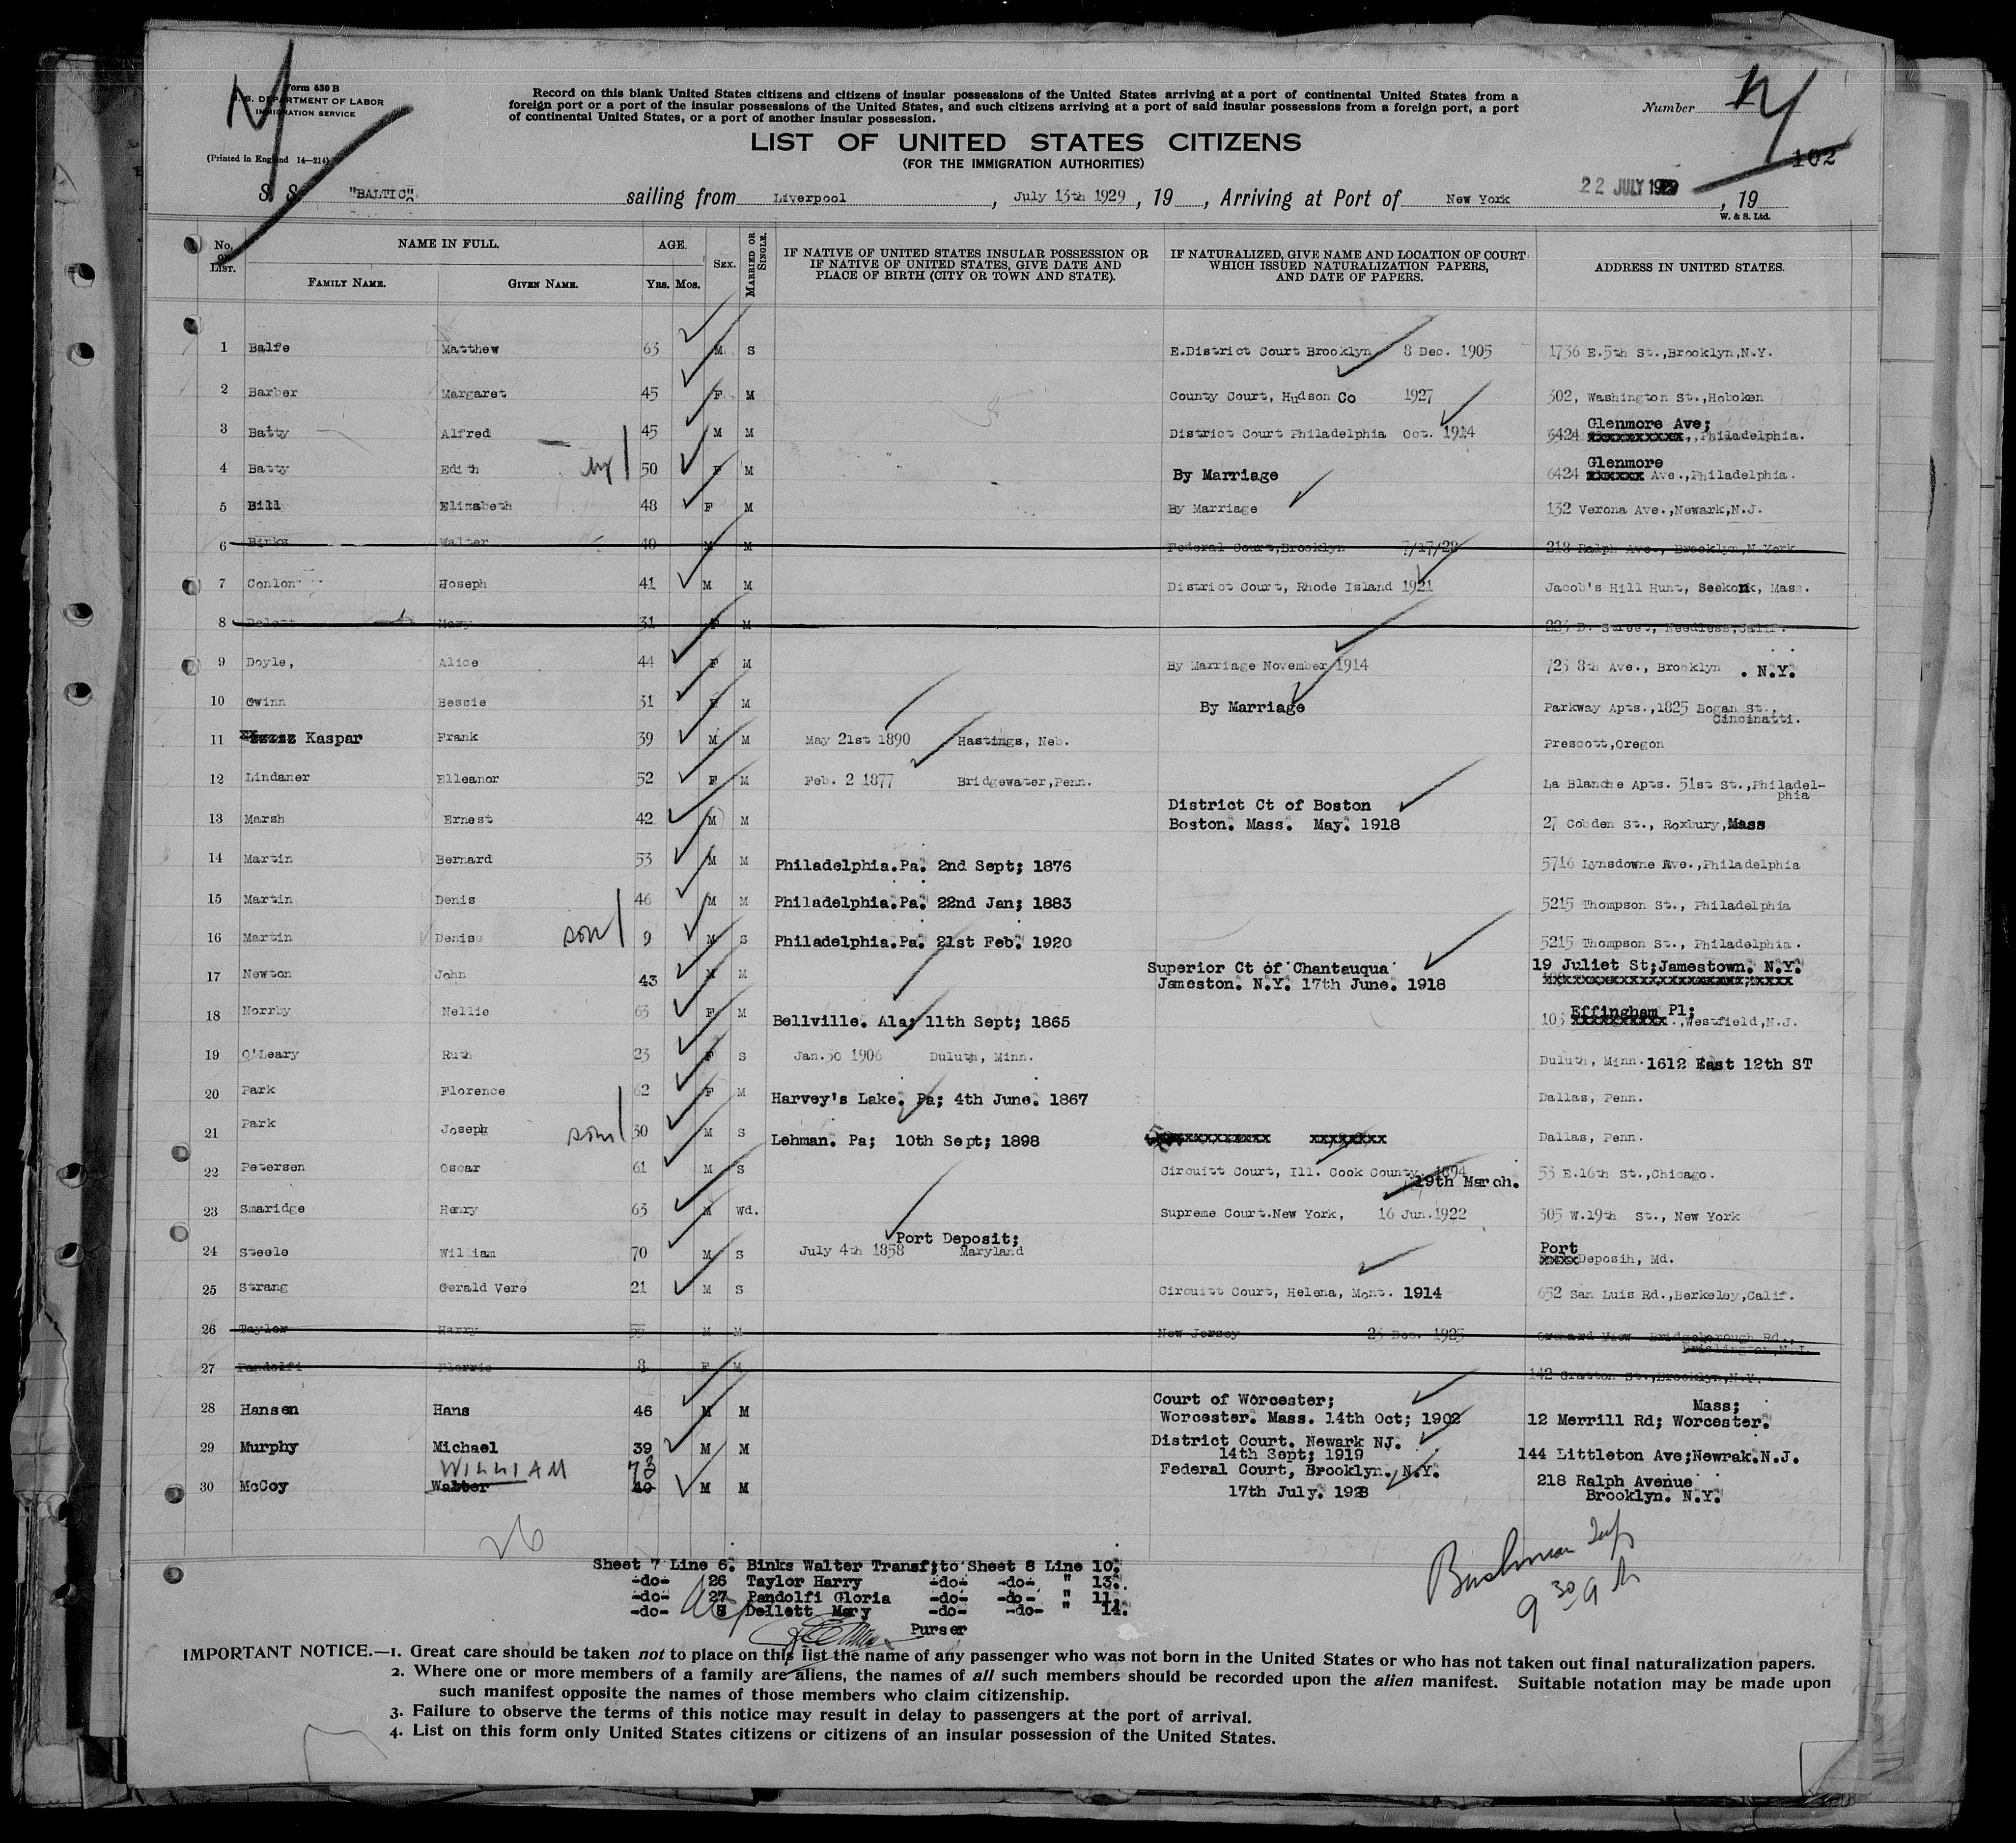 Form 630 B
U. S. DEPARTMENT OF LABOR
IMMIGRATION SERVICE
(Printed in England 14—214)
Record on this blank United States citizens and citizens of insular possessions of the United States arriving at a port of continental United States from a
foreign port or a port of the insular possessions of the United States, and such citizens arriving at a port of said insular possessions from a foreign port, a port
of continental United States, or a port of another insular possession.
Number
LIST OF UNITED STATES CITIZENS
(FOR THE IMMIGRATION AUTHORITIES)
102
S. S. "BALTIC" sailing from Liverpool, July 13th 1929, 19 , Arriving at Port of New York 22 JULY 1929, 19
W. & S. Ltd.
No. on List. NAME IN FULL. AGE. Sex. Married or Single. IF NATIVE OF UNITED STATES INSULAR POSSESSION OR IF NATIVE OF UNITED STATES, GIVE DATE AND PLACE OF BIRTH (CITY OR TOWN AND STATE). IF NATURALIZED, GIVE NAME AND LOCATION OF COURT WHICH ISSUED NATURALIZATION PAPERS, AND DATE OF PAPERS. ADDRESS IN UNITED STATES.
Family Name. Given Name. Yrs. Mos.
1 Balfe Matthew 63 M S E.District Court Brooklyn 8 Dec. 1905 1736 E.5th St.,Brooklyn,N.Y.
2 Barber Margaret 45 F M County Court, Hudson Co 1927 302, Washington St.,Hoboken
3 Batty Alfred 45 M M District Court Philadelphia Oct. 1914 6424 Glenmore Ave; ,Philadelphia.
4 Batty Edith 50 F M By Marriage 6424 Glenmore Ave.,Philadelphia.
5 Bill Elizabeth 48 F M By Marriage 132 Verona Ave.,Newark,N.J.
6 Binks Walter 40 M M Federal Court,Brooklyn 7/17/28 218 Ralph Ave., Brooklyn,N.York
7 Conlon Hoseph 41 M M District Court, Rhode Island 1921 Jacob's Hill Hunt, Seekonk, Mass.
8 Delett Mary 31 F M D. Street, Needless,Calif.
9 Doyle, Alice 44 F M By Marriage November 1914 723 8th Ave., Brooklyn . N.Y.
10 Gwinn Bessie 31 F M By Marriage Parkway Apts.,1825 Bogan St., Cincinatti.
11 Kaspar Frank 39 M M May 21st 1890 Hastings, Neb. Prescott,Oregon
12 Lindaner Elleanor 52 F M Feb. 2 1877 Bridgewater,Penn. La Blanche Apts. 51st St.,Philadel-
phia
13 Marsh Ernest 42 M M District Ct of Boston
Boston. Mass. May. 1918 27 Cobden St., Roxbury,Mass
14 Martin Bernard 53 M M Philadelphia.Pa. 2nd Sept; 1876 5716 Lynsdowne Ave.,Philadelphia
15 Martin Denis 46 M M Philadelphia.Pa. 22nd Jan; 1883 5215 Thompson St., Philadelphia
16 Martin Deniss son 9 M S Philadelphia.Pa. 21st Feb. 1920 5215 Thompson St., Philadelphia.
17 Newton John 43 M M Superior Ct of Chantauqua
Jameston. N.Y. 17th June. 1918 19 Juliet St;Jamestown. N.Y.
18 Norrby Nellie 63 F M Bellville. Ala; 11th Sept; 1865 103 Effingham Pl; .,Westfield,N.J.
19 O'Leary Ruth 23 F S Jan.30 1906 Duluth, Minn. Duluth, Minn. 1612 East 12th ST
20 Park Florence 62 F M Harvey's Lake. Pa; 4th June. 1867 Dallas, Penn.
21 Park Joseph son 30 M S Lehman. Pa; 10th Sept; 1898 Dallas, Penn.
22 Petersen Oscar 61 M S Circuitt Court, Ill. Cook County 1894
19th March. 53 E.16th St.,Chicago.
23 Smaridge Henry 63 M Wd. Supreme Court.New York, 16 Jun.1922 305 W.19th St., New York
24 Steele William 70 M S July 4th 1858 Port Deposit; Maryland Port Deposih, Md.
25 Strang Gerald Vere 21 M S Circuitt Court, Helena, Mont. 1914 652 San Luis Rd.,Berkeley,Calif.
26 Taylor Harry 55 M M New Jersey 23 Dec. 1925 Orchard View Bridgeborough Rd.,
27 Pandolfi Florrie 8 F M 142 Gratton St.,Brooklyn,N.Y.
28 Hansen Hans 46 M M Court of Worcester;
Worcester. Mass. 14th Oct; 1902 12 Merrill Rd; Worcester. Mass;
29 Murphy Michael 39 M M District Court. Newark NJ.
14th Sept; 1919 144 Littleton Ave;Newrak.N.J.
WILLIAM 73
30 McCoy Walter 40 M M Federal Court, Brooklyn. N.Y.
17th July. 1928 218 Ralph Avenue
Brooklyn. N.Y.
26
Sheet 7 Line 6. Binks Walter Transf;to Sheet 8 Line 10.
-do- 26 Taylor Harry -do- -do- " 13.
-do- 27 Pandolfi Gloria -do- -do- " 11.
-do- 8 Dellett Mary -do- -do- " 14.
Purser
9 30 A
IMPORTANT NOTICE.—1. Great care should be taken not to place on this list the name of any passenger who was not born in the United States or who has not taken out final naturalization papers.
2. Where one or more members of a family are aliens, the names of all such members should be recorded upon the alien manifest. Suitable notation may be made upon
such manifest opposite the names of those members who claim citizenship.
3. Failure to observe the terms of this notice may result in delay to passengers at the port of arrival.
4. List on this form only United States citizens or citizens of an insular possession of the United States.